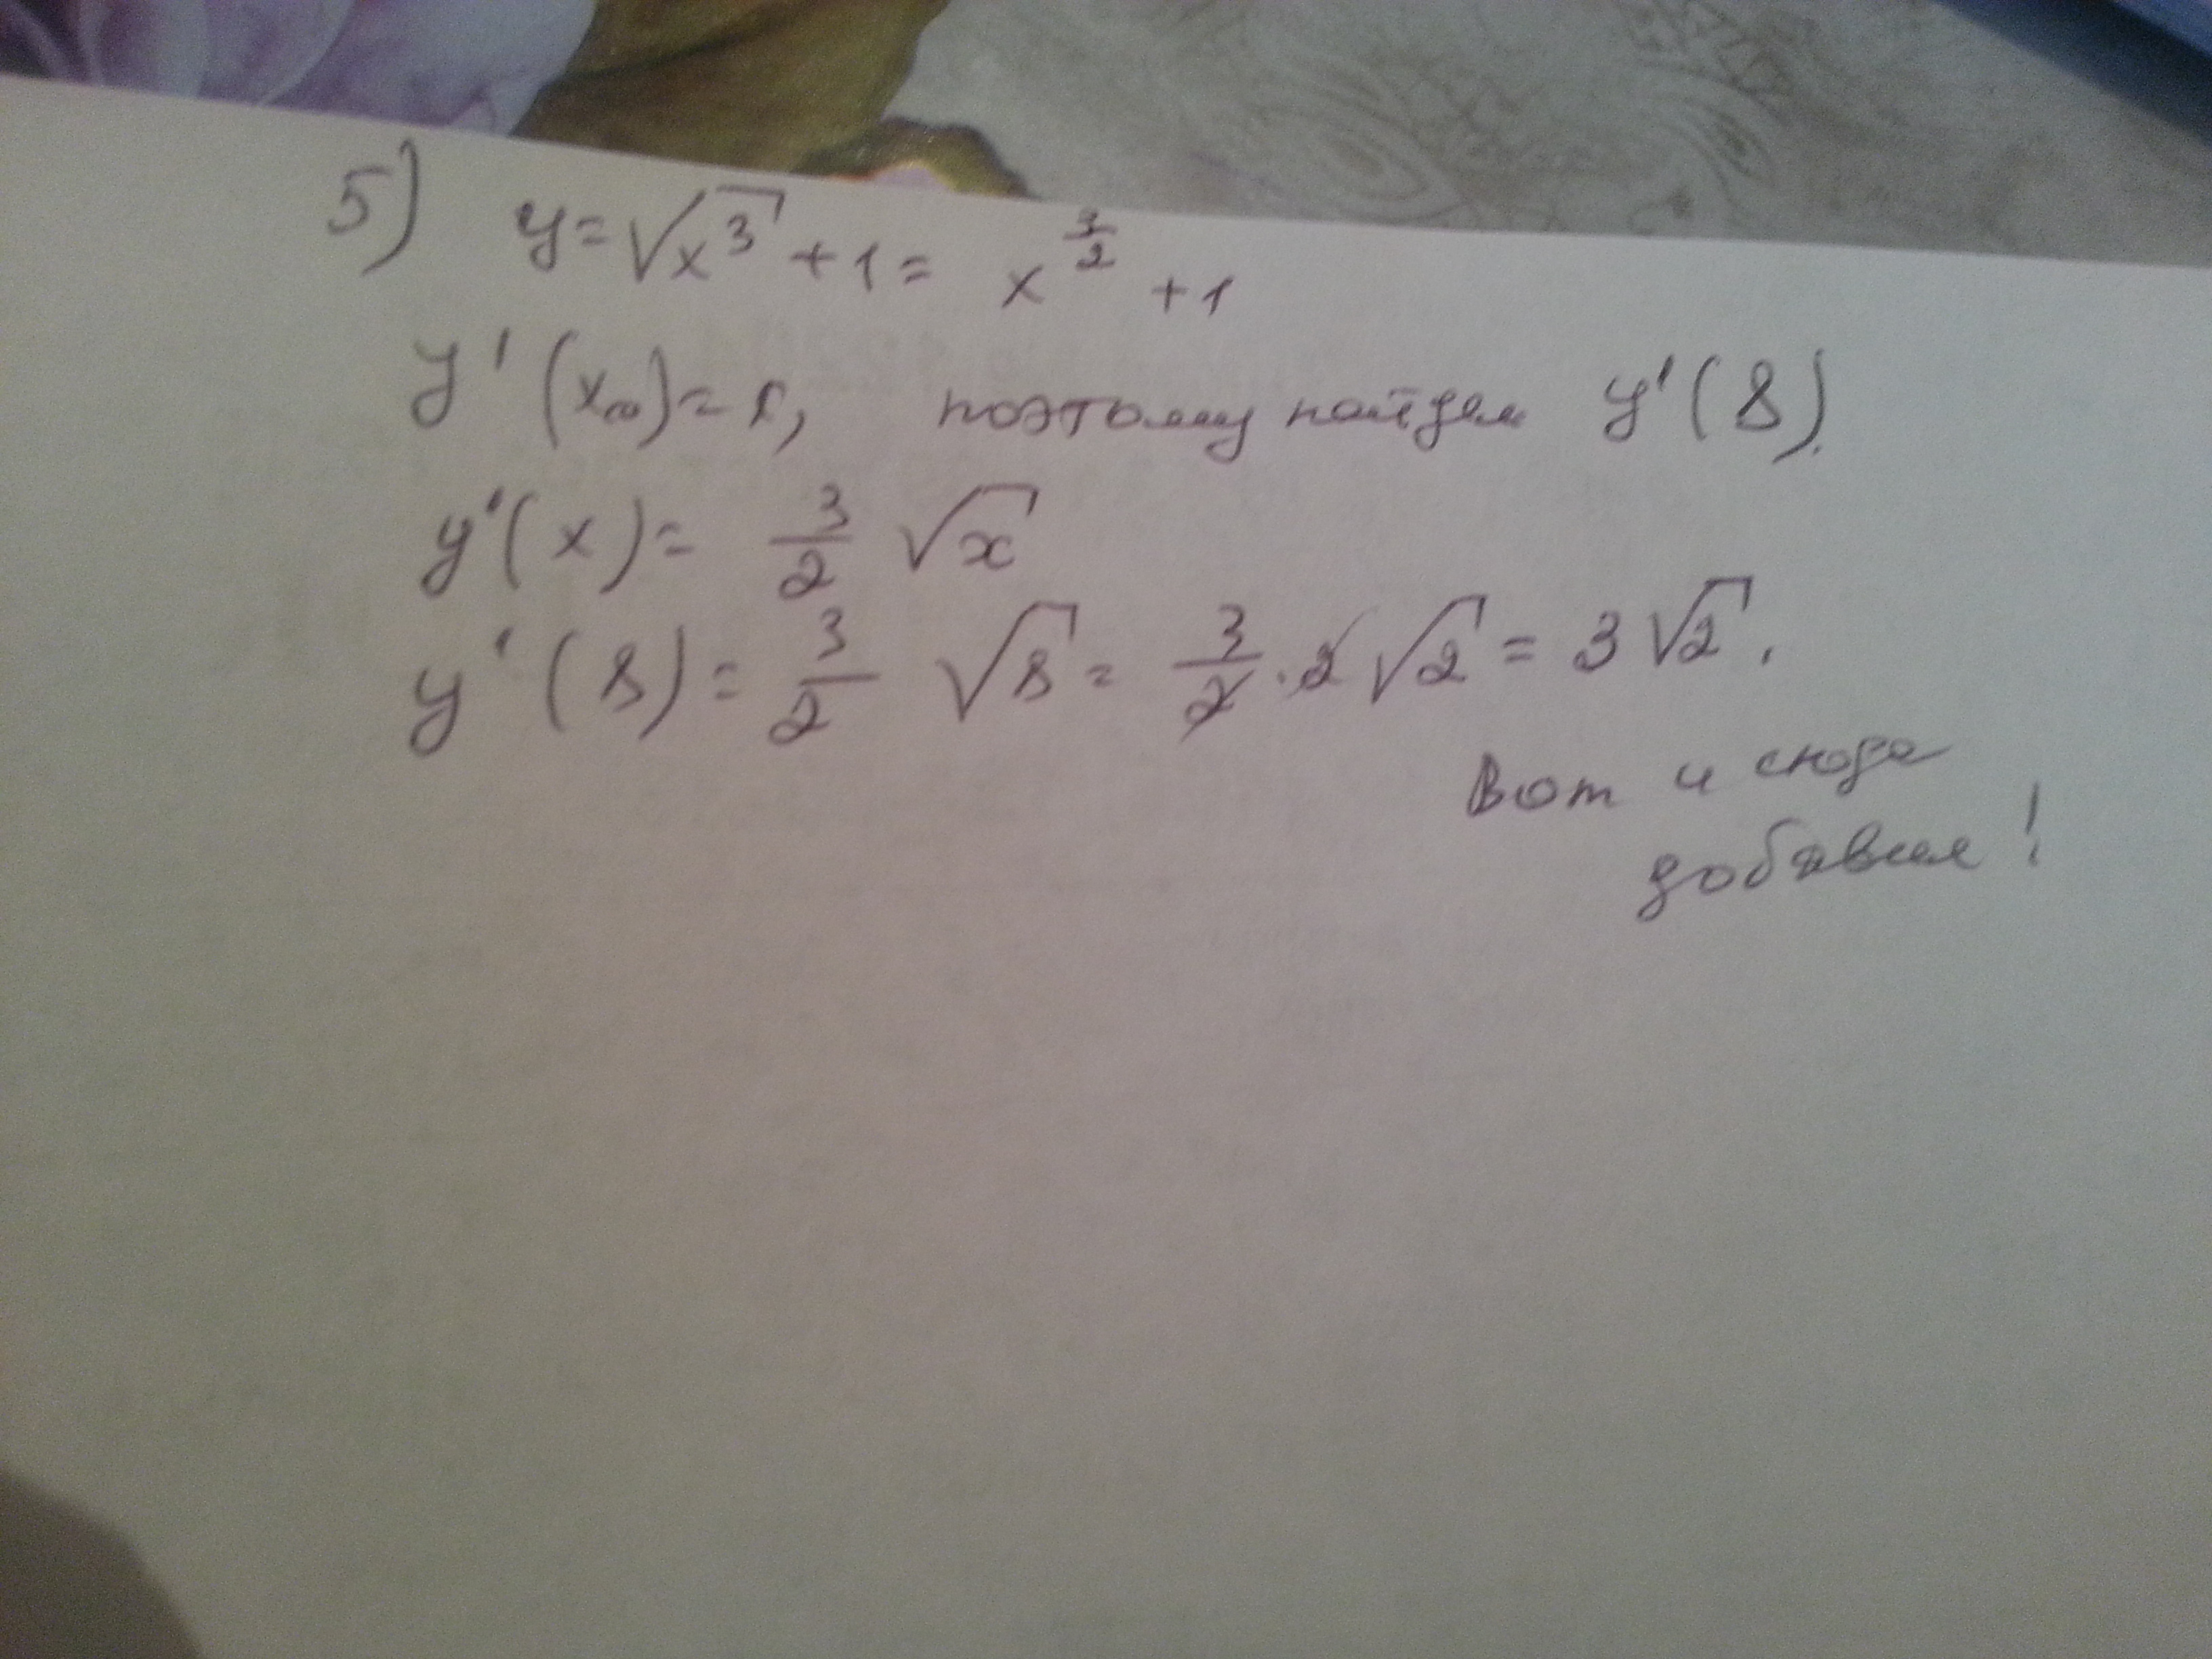 5) y = √x³ + 1 = x^(3/2) + 1
y'(x₀) = k, поэтому найдем y'(8).
y'(x) = 3/2 √x
y'(8) = 3/2 √8 = 3/2 · 2 √2 = 3 √2.
Вот и сюда
добавил!